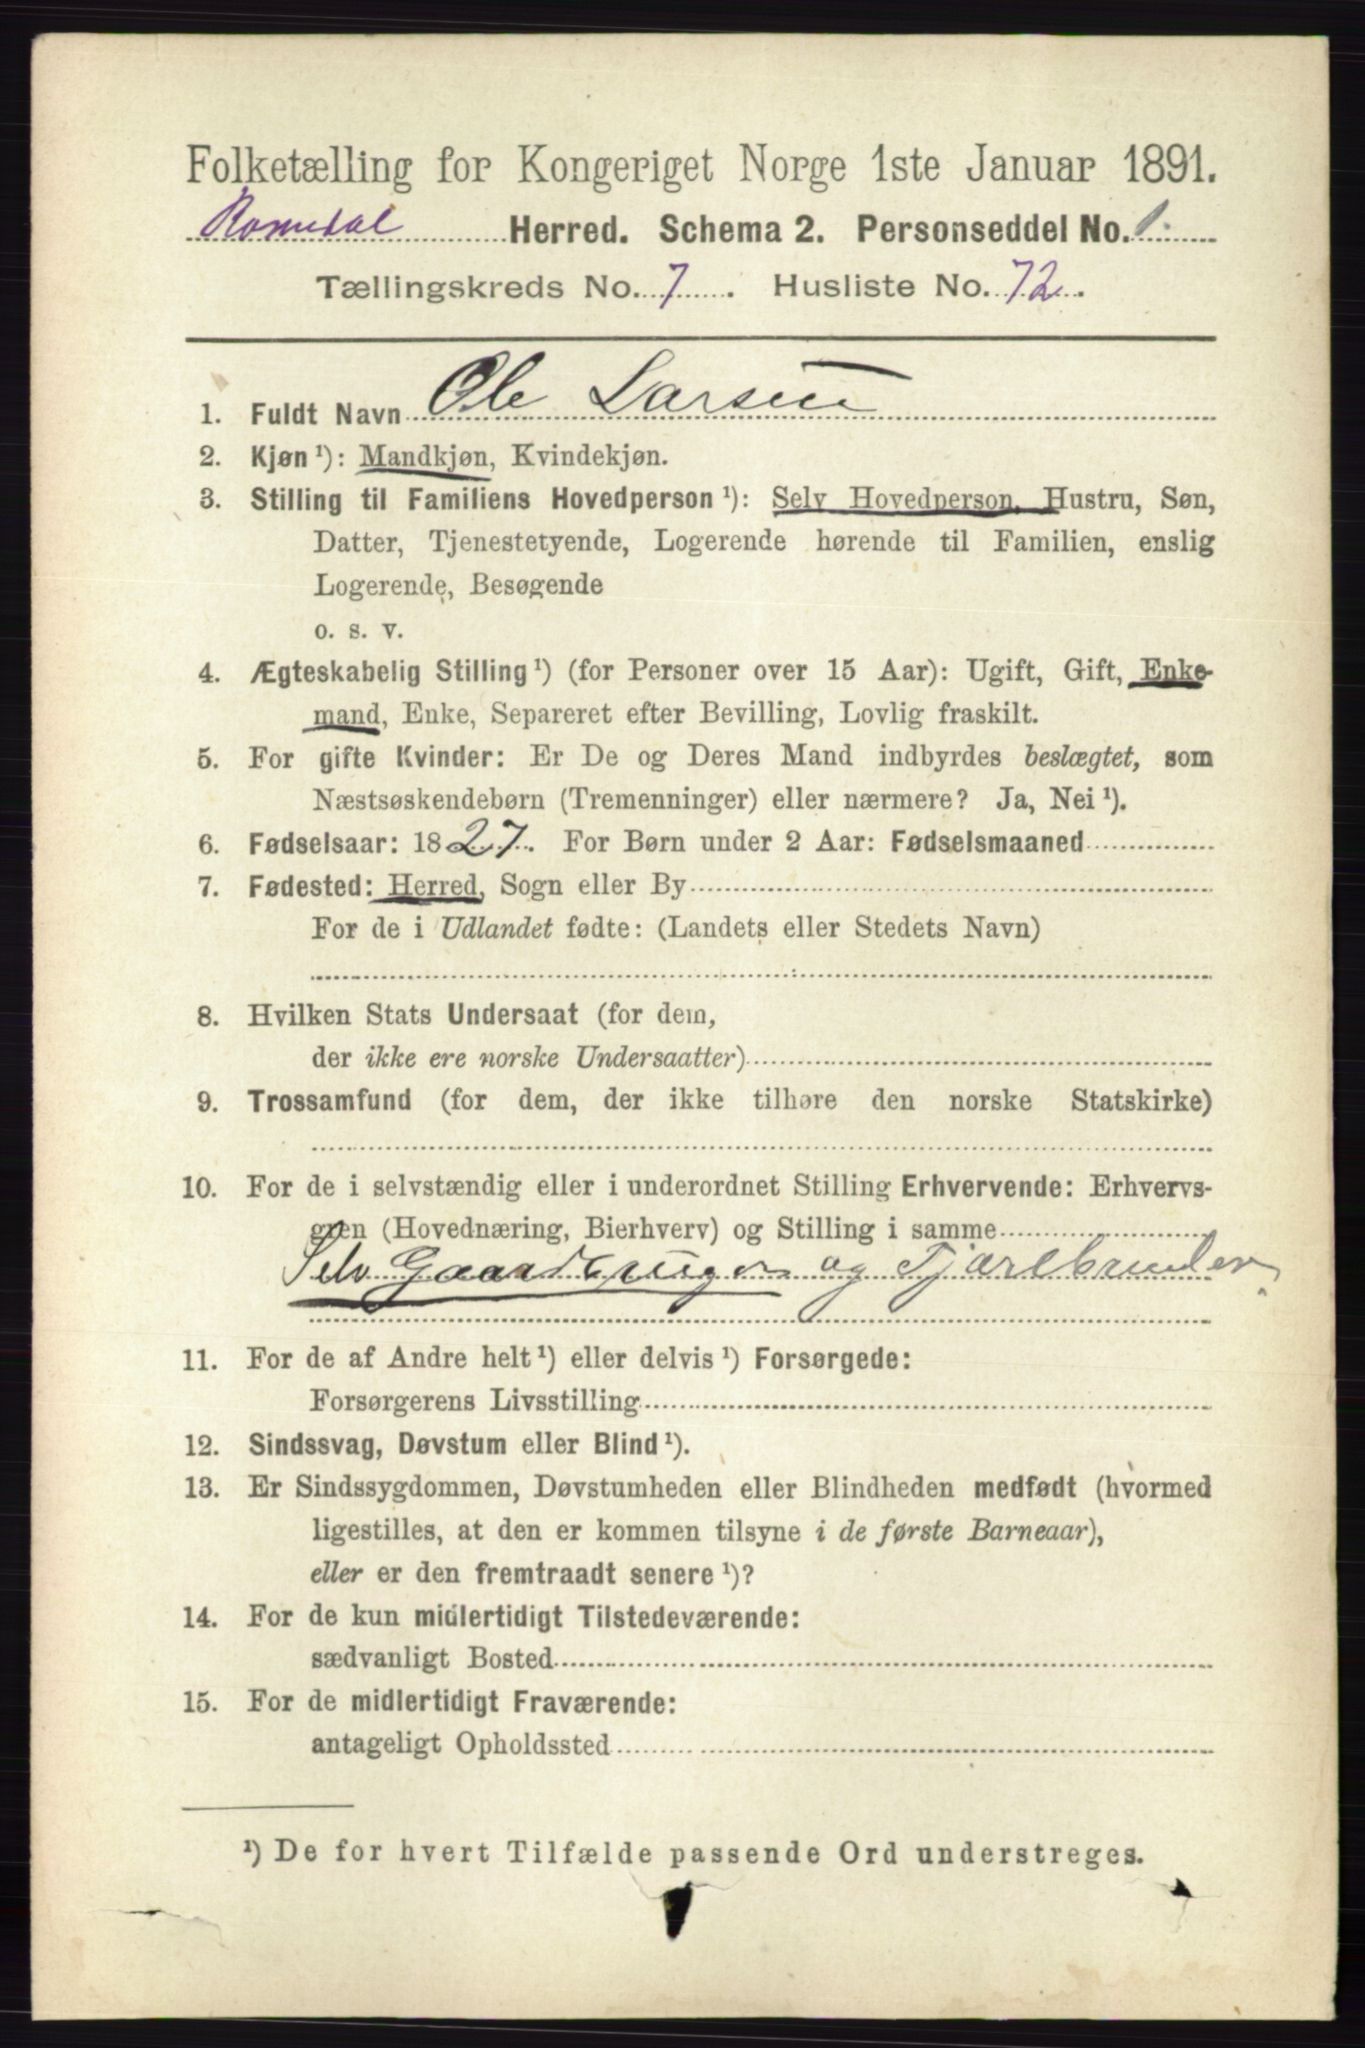 Folketælling for Kongeriget Norge 1ste Januar 1891.
Romedal Herred. Schema 2. Personseddel No. 1.
Tællingskreds No. 7. Husliste No. 72.
1. Fuldt Navn Ole Larsen
2. Kjøn ¹): Mandkjøn, Kvindekjøn.
3. Stilling til Familiens Hovedperson ¹): Selv Hovedperson, Hustru, Søn,
Datter, Tjenestetyende, Logerende hørende til Familien, enslig
Logerende, Besøgende
o. s. v.
4. Ægteskabelig Stilling ¹) (for Personer over 15 Aar): Ugift, Gift, Enke-
mand, Enke, Separeret efter Bevilling, Lovlig fraskilt.
5. For gifte Kvinder: Er De og Deres Mand indbyrdes beslægtet, som
Næstsøskendebørn (Tremenninger) eller nærmere? Ja, Nei ¹).
6. Fødselsaar: 1827. For Børn under 2 Aar: Fødselsmaaned
7. Fødested: Herred, Sogn eller By
For de i Udlandet fødte: (Landets eller Stedets Navn)
8. Hvilken Stats Undersaat (for dem,
der ikke ere norske Undersaatter)
9. Trossamfund (for dem, der ikke tilhøre den norske Statskirke)
10. For de i selvstændig eller i underordnet Stilling Erhvervende: Erhvervs-
gren (Hovednæring, Bierhverv) og Stilling i samme
Selv Gaardbruger og Tjærebrænder
11. For de af Andre helt ¹) eller delvis ¹) Forsørgede:
Forsørgerens Livsstilling
12. Sindssvag, Døvstum eller Blind ¹).
13. Er Sindssygdommen, Døvstumheden eller Blindheden medfødt (hvormed
ligestilles, at den er kommen tilsyne i de første Barneaar),
eller er den fremtraadt senere ¹)?
14. For de kun midlertidigt Tilstedeværende:
sædvanligt Bosted
15. For de midlertidigt Fraværende:
antageligt Opholdssted
¹) De for hvert Tilfælde passende Ord understreges.